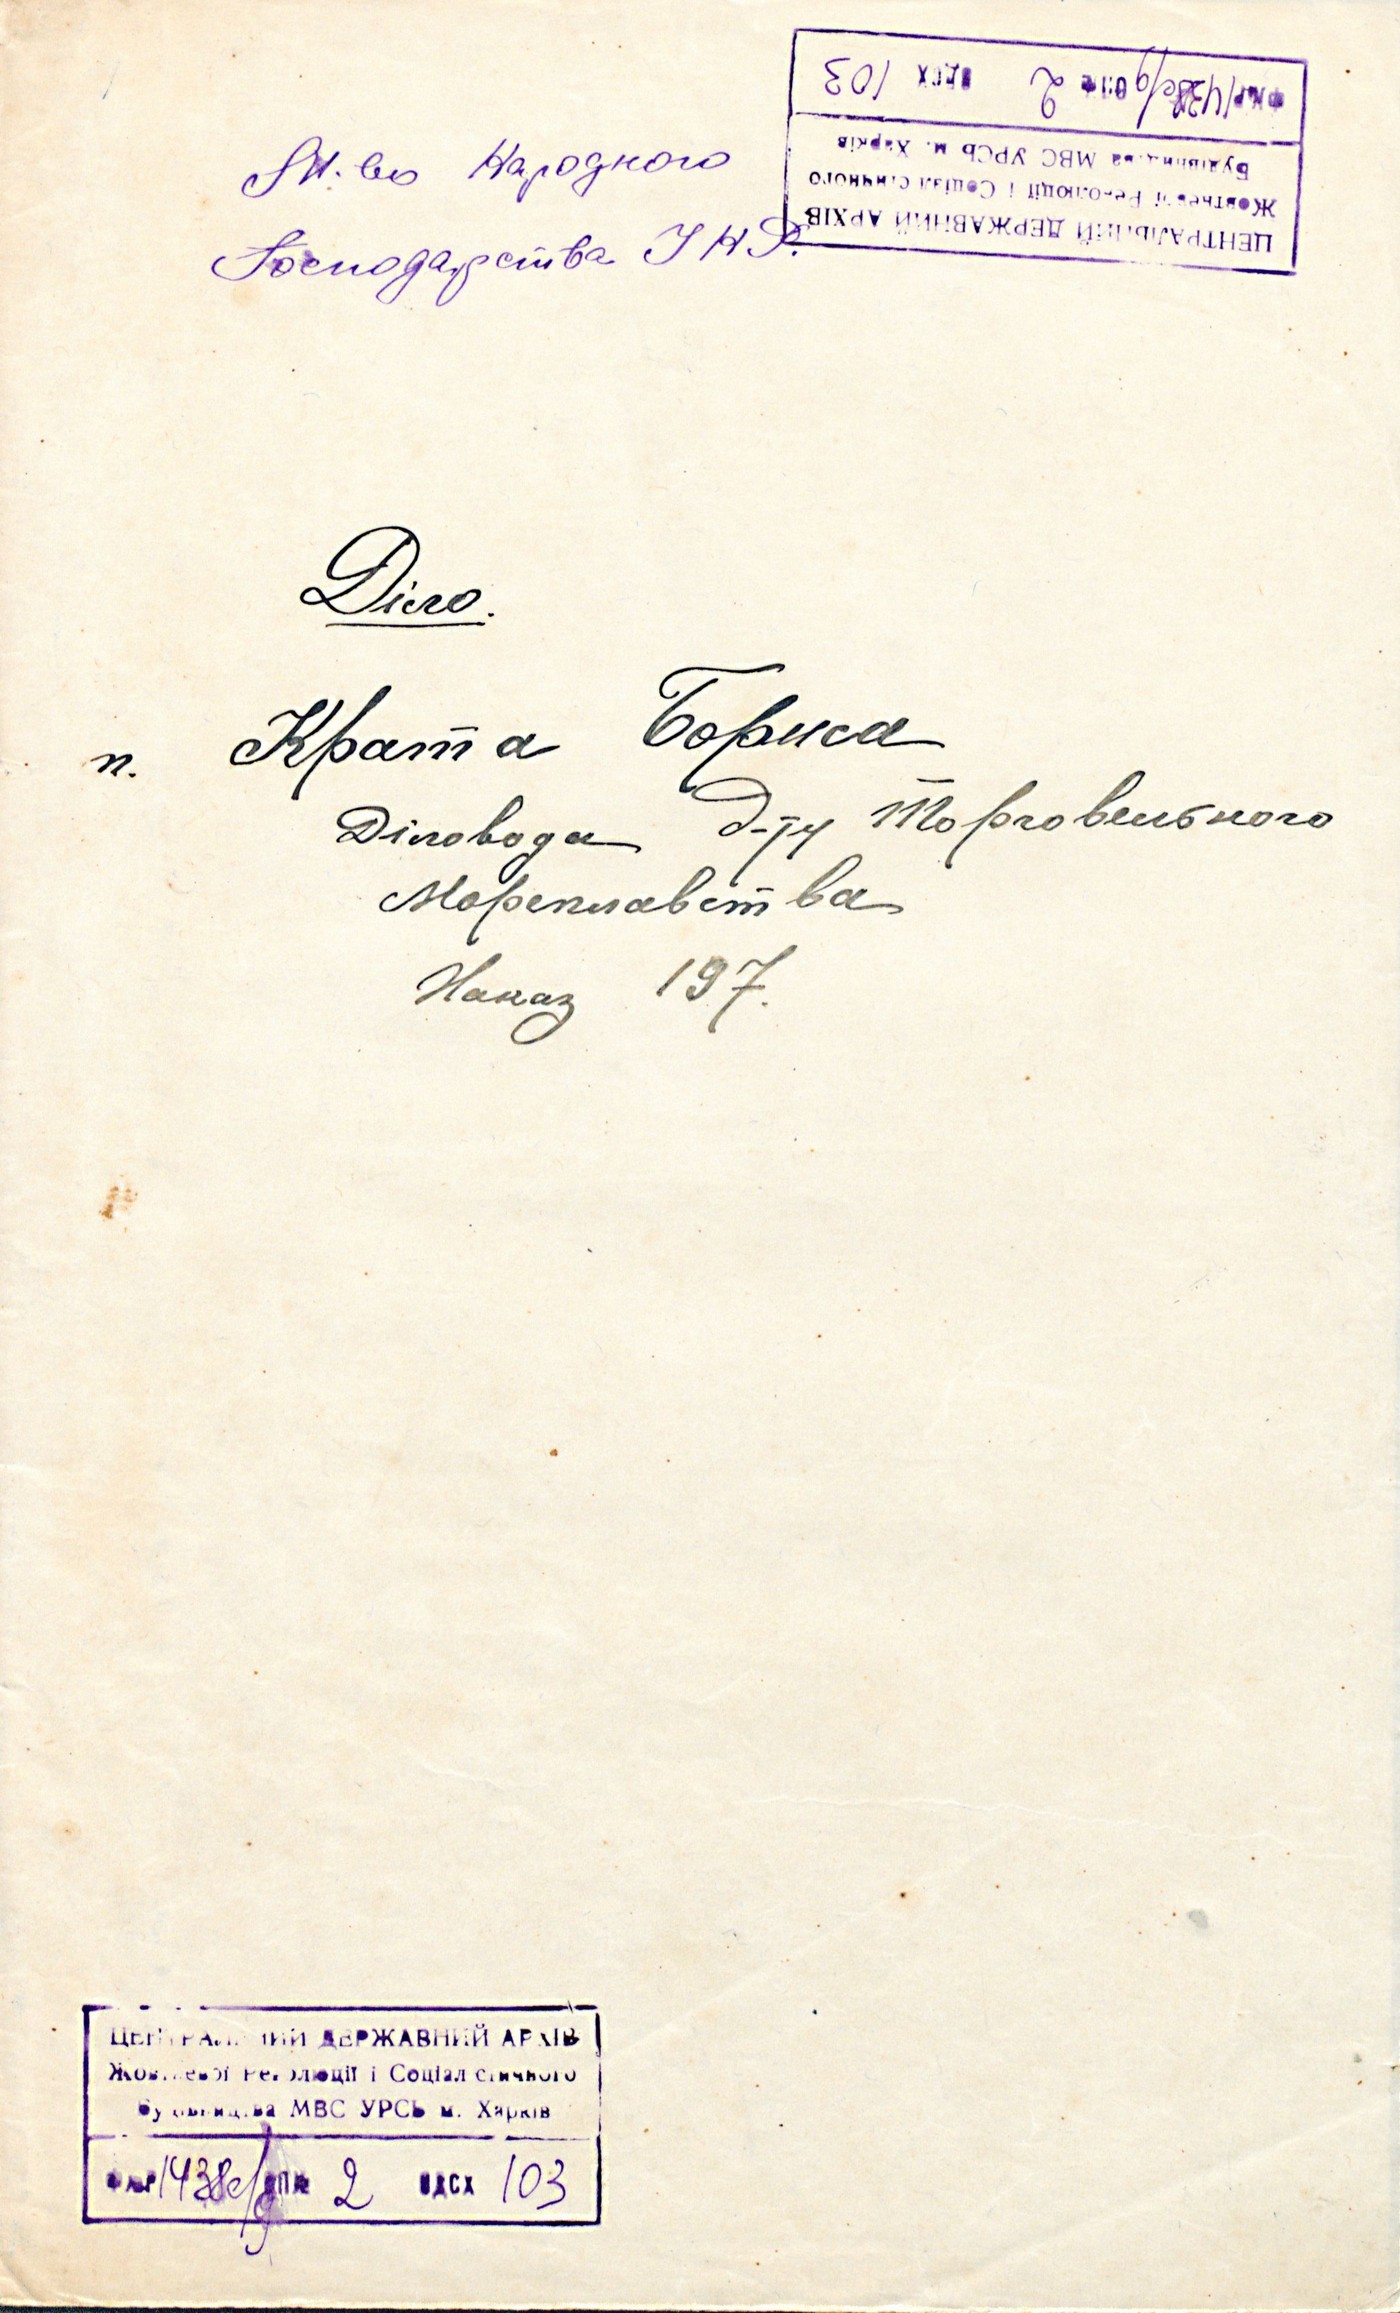 М-во Народного
Господарства УНР.
ЦЕНТРАЛЬНИЙ ДЕРЖАВНИЙ АРХІВ
Жовтневої Революції і Соціалістичного
Будівництва МВС УРСР м. Харків
2 ОДСХ 103
Діло.
п. Крата Бориса
Діловода д-ту Торговельного
Мореплавства
Наказ 197.
ЦЕНТРАЛЬНИЙ ДЕРЖАВНИЙ АРХІВ
Жовтневої Революції і Соціалістичного
Будівництва МВС УРСР м. Харків
2 ОДСХ 103